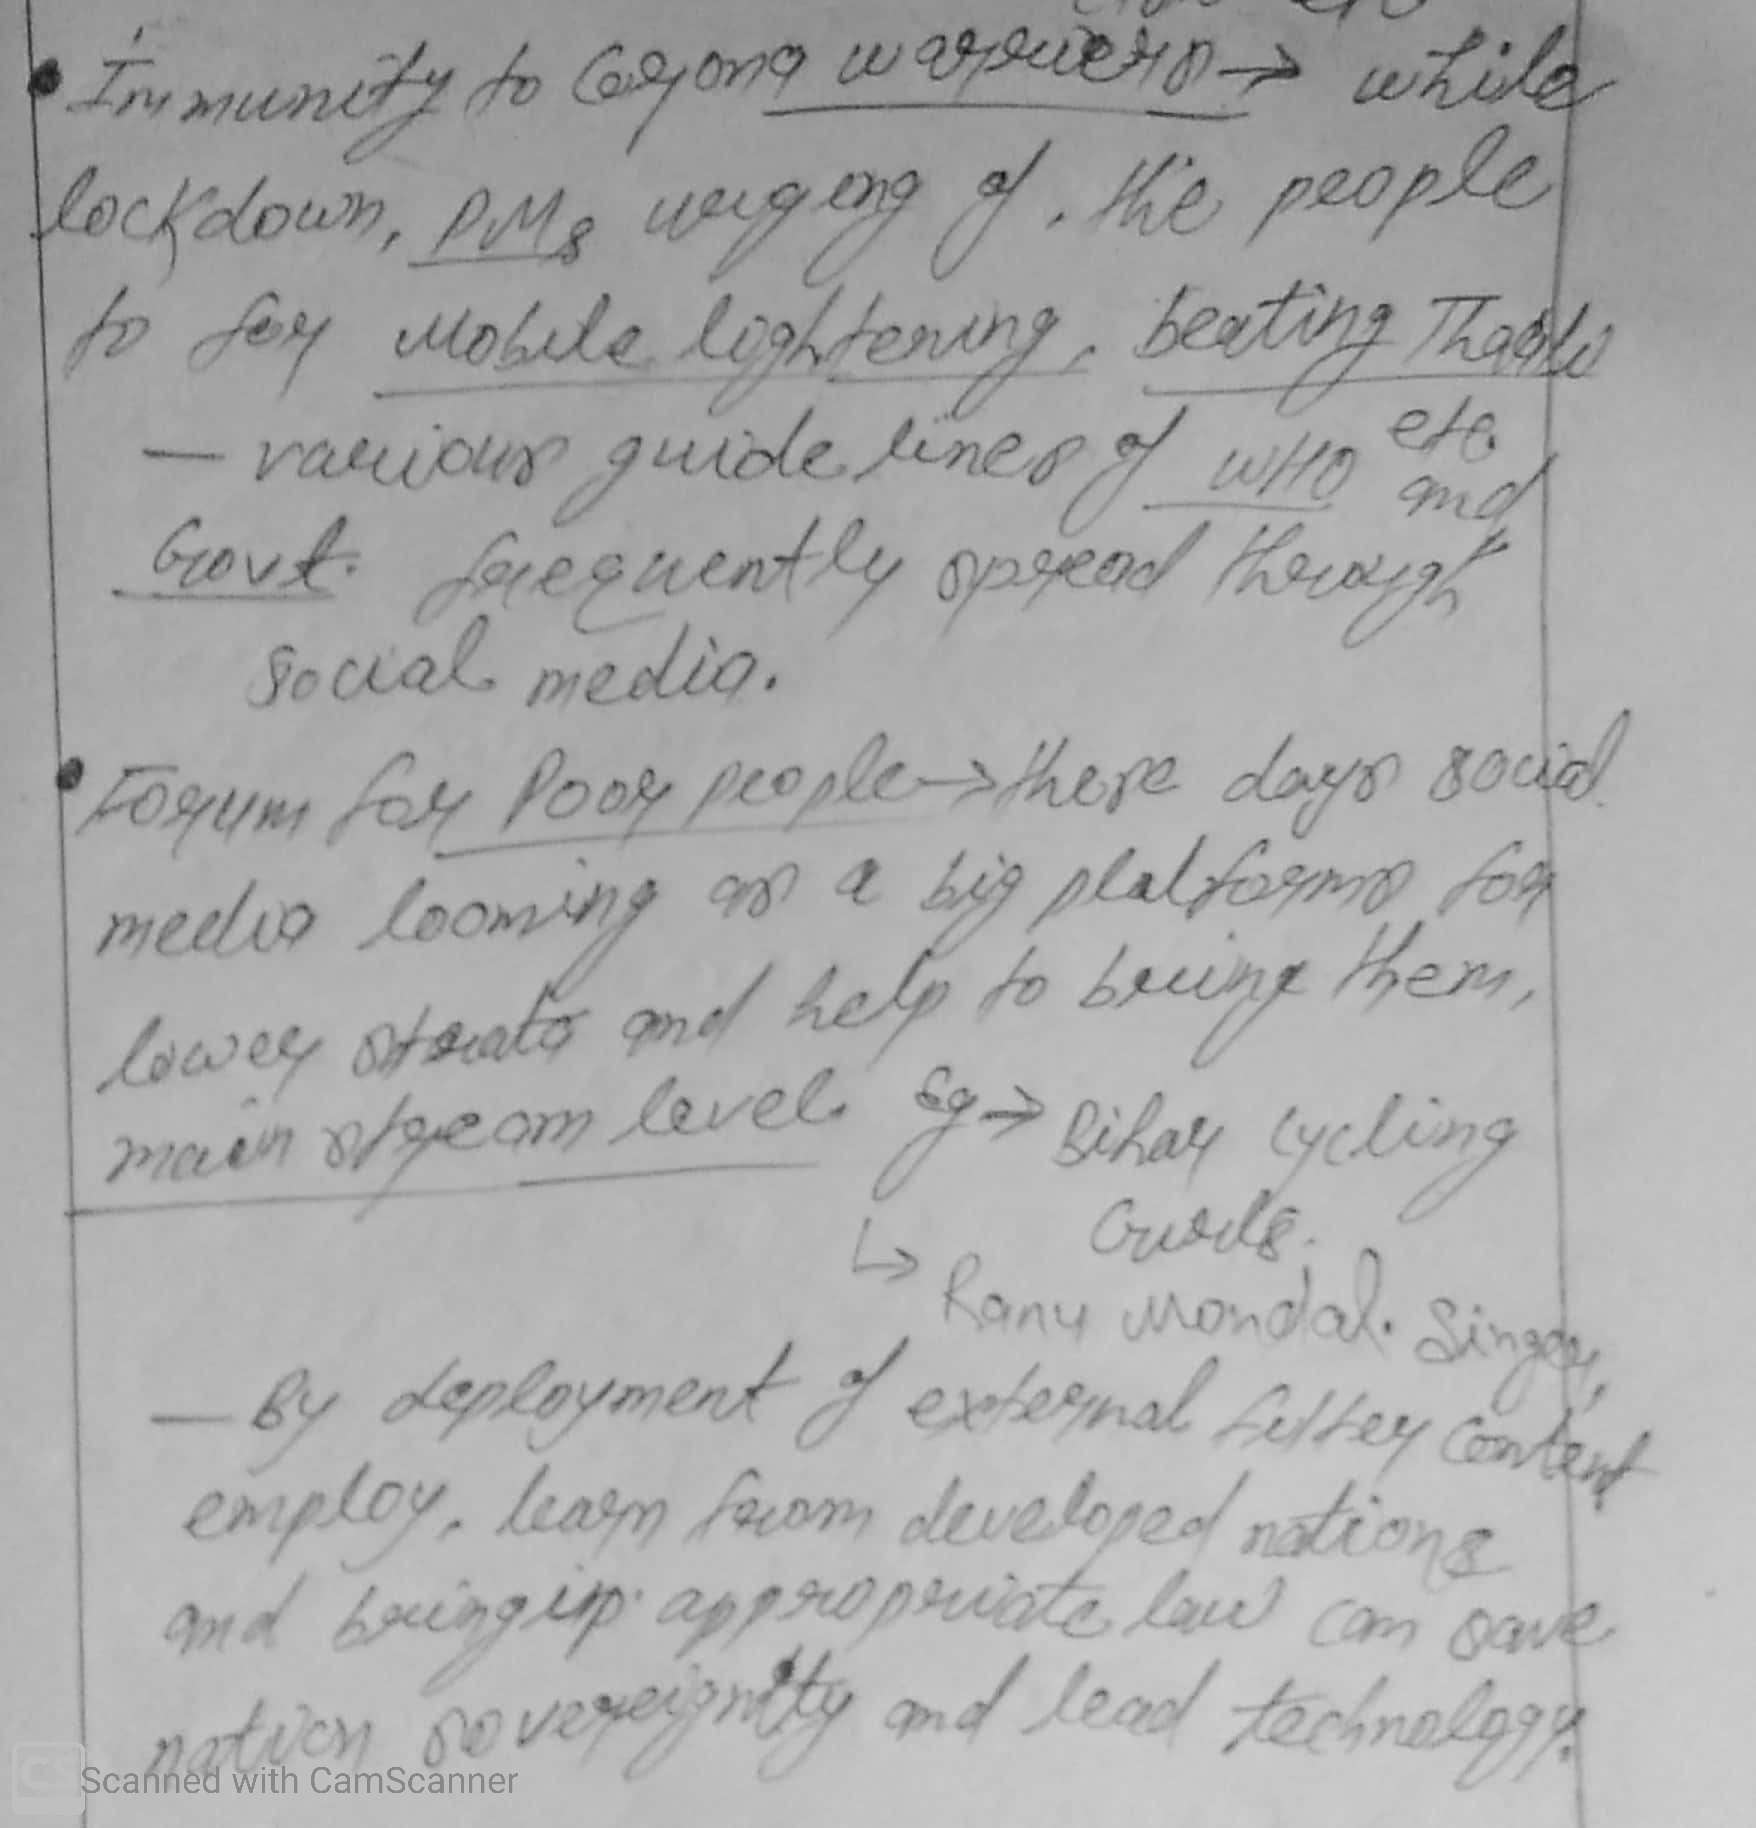 • Immunity to Corona warriers → while
lockdown, PMs urging of the people
to for Mobile lightening, beating Thaali
etc.
– various guidelines of WHO and
Govt. frequently spread through
social media.
• Forum for Poor people → these days social
media looming as a big platforms for
lower strata and help to bring them,
main stream level. Eg → Bihar cycling
Gurls.
↳ Ranu Mondal. Singer,
– By deployment of external filter content
employ, learn from developed nations
and bringing appropriate law can save
nation sovereignity and lead technology.
CS Scanned with CamScanner